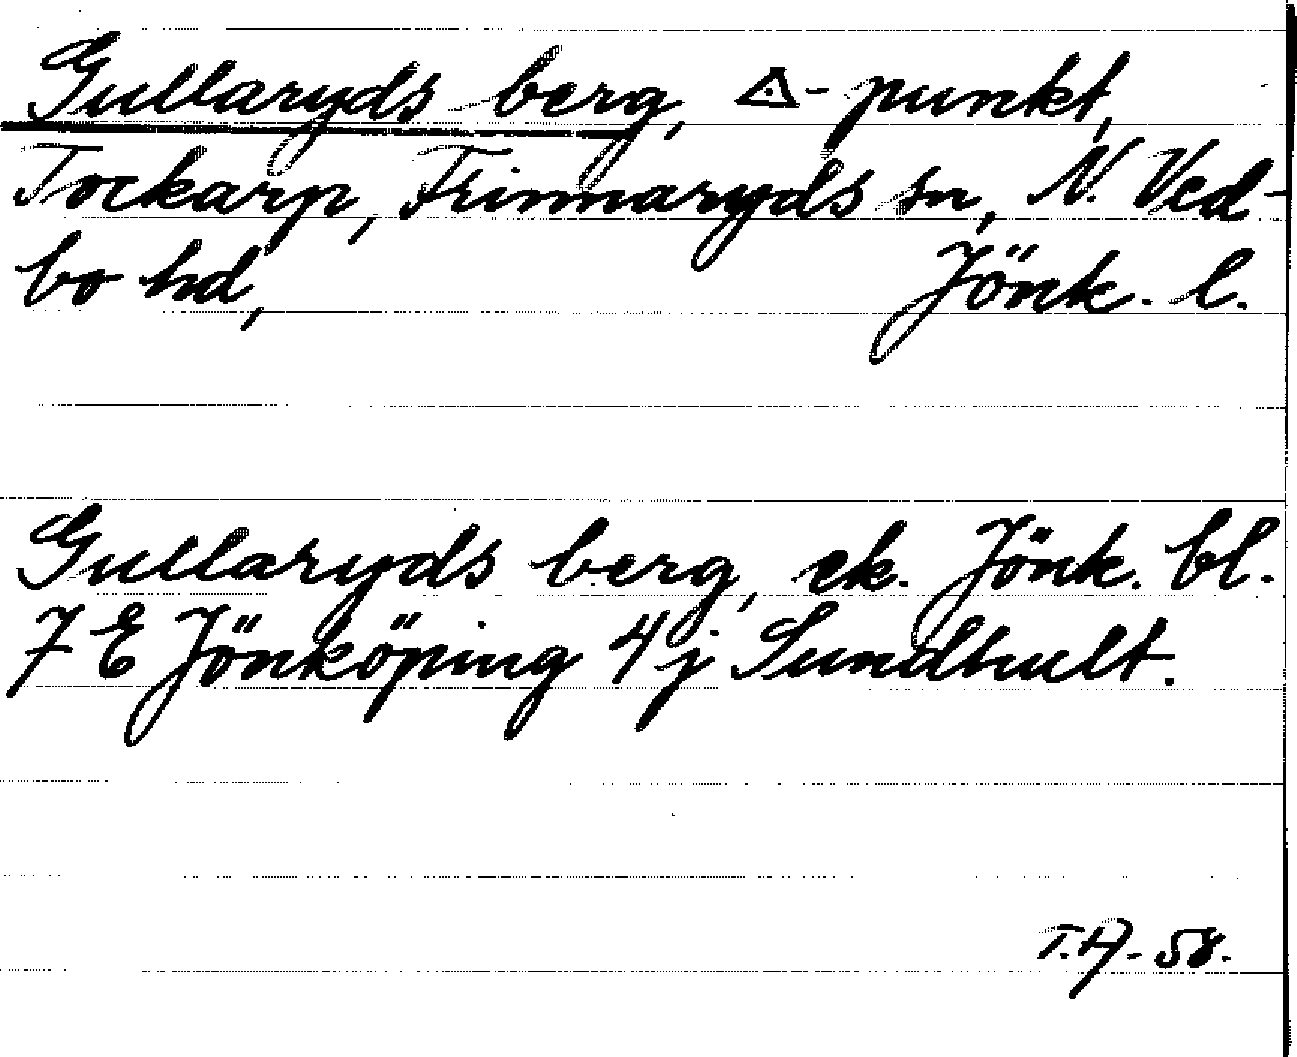 Gullaryds berg, △-punkt,
Tockarp, Frinnaryds sn, N. Ved-
bo hd, Jönk. l.
Gullaryds berg, ek. Jönk. bl.
7 E Jönköping 4 j Sundhult.
T.A-58.